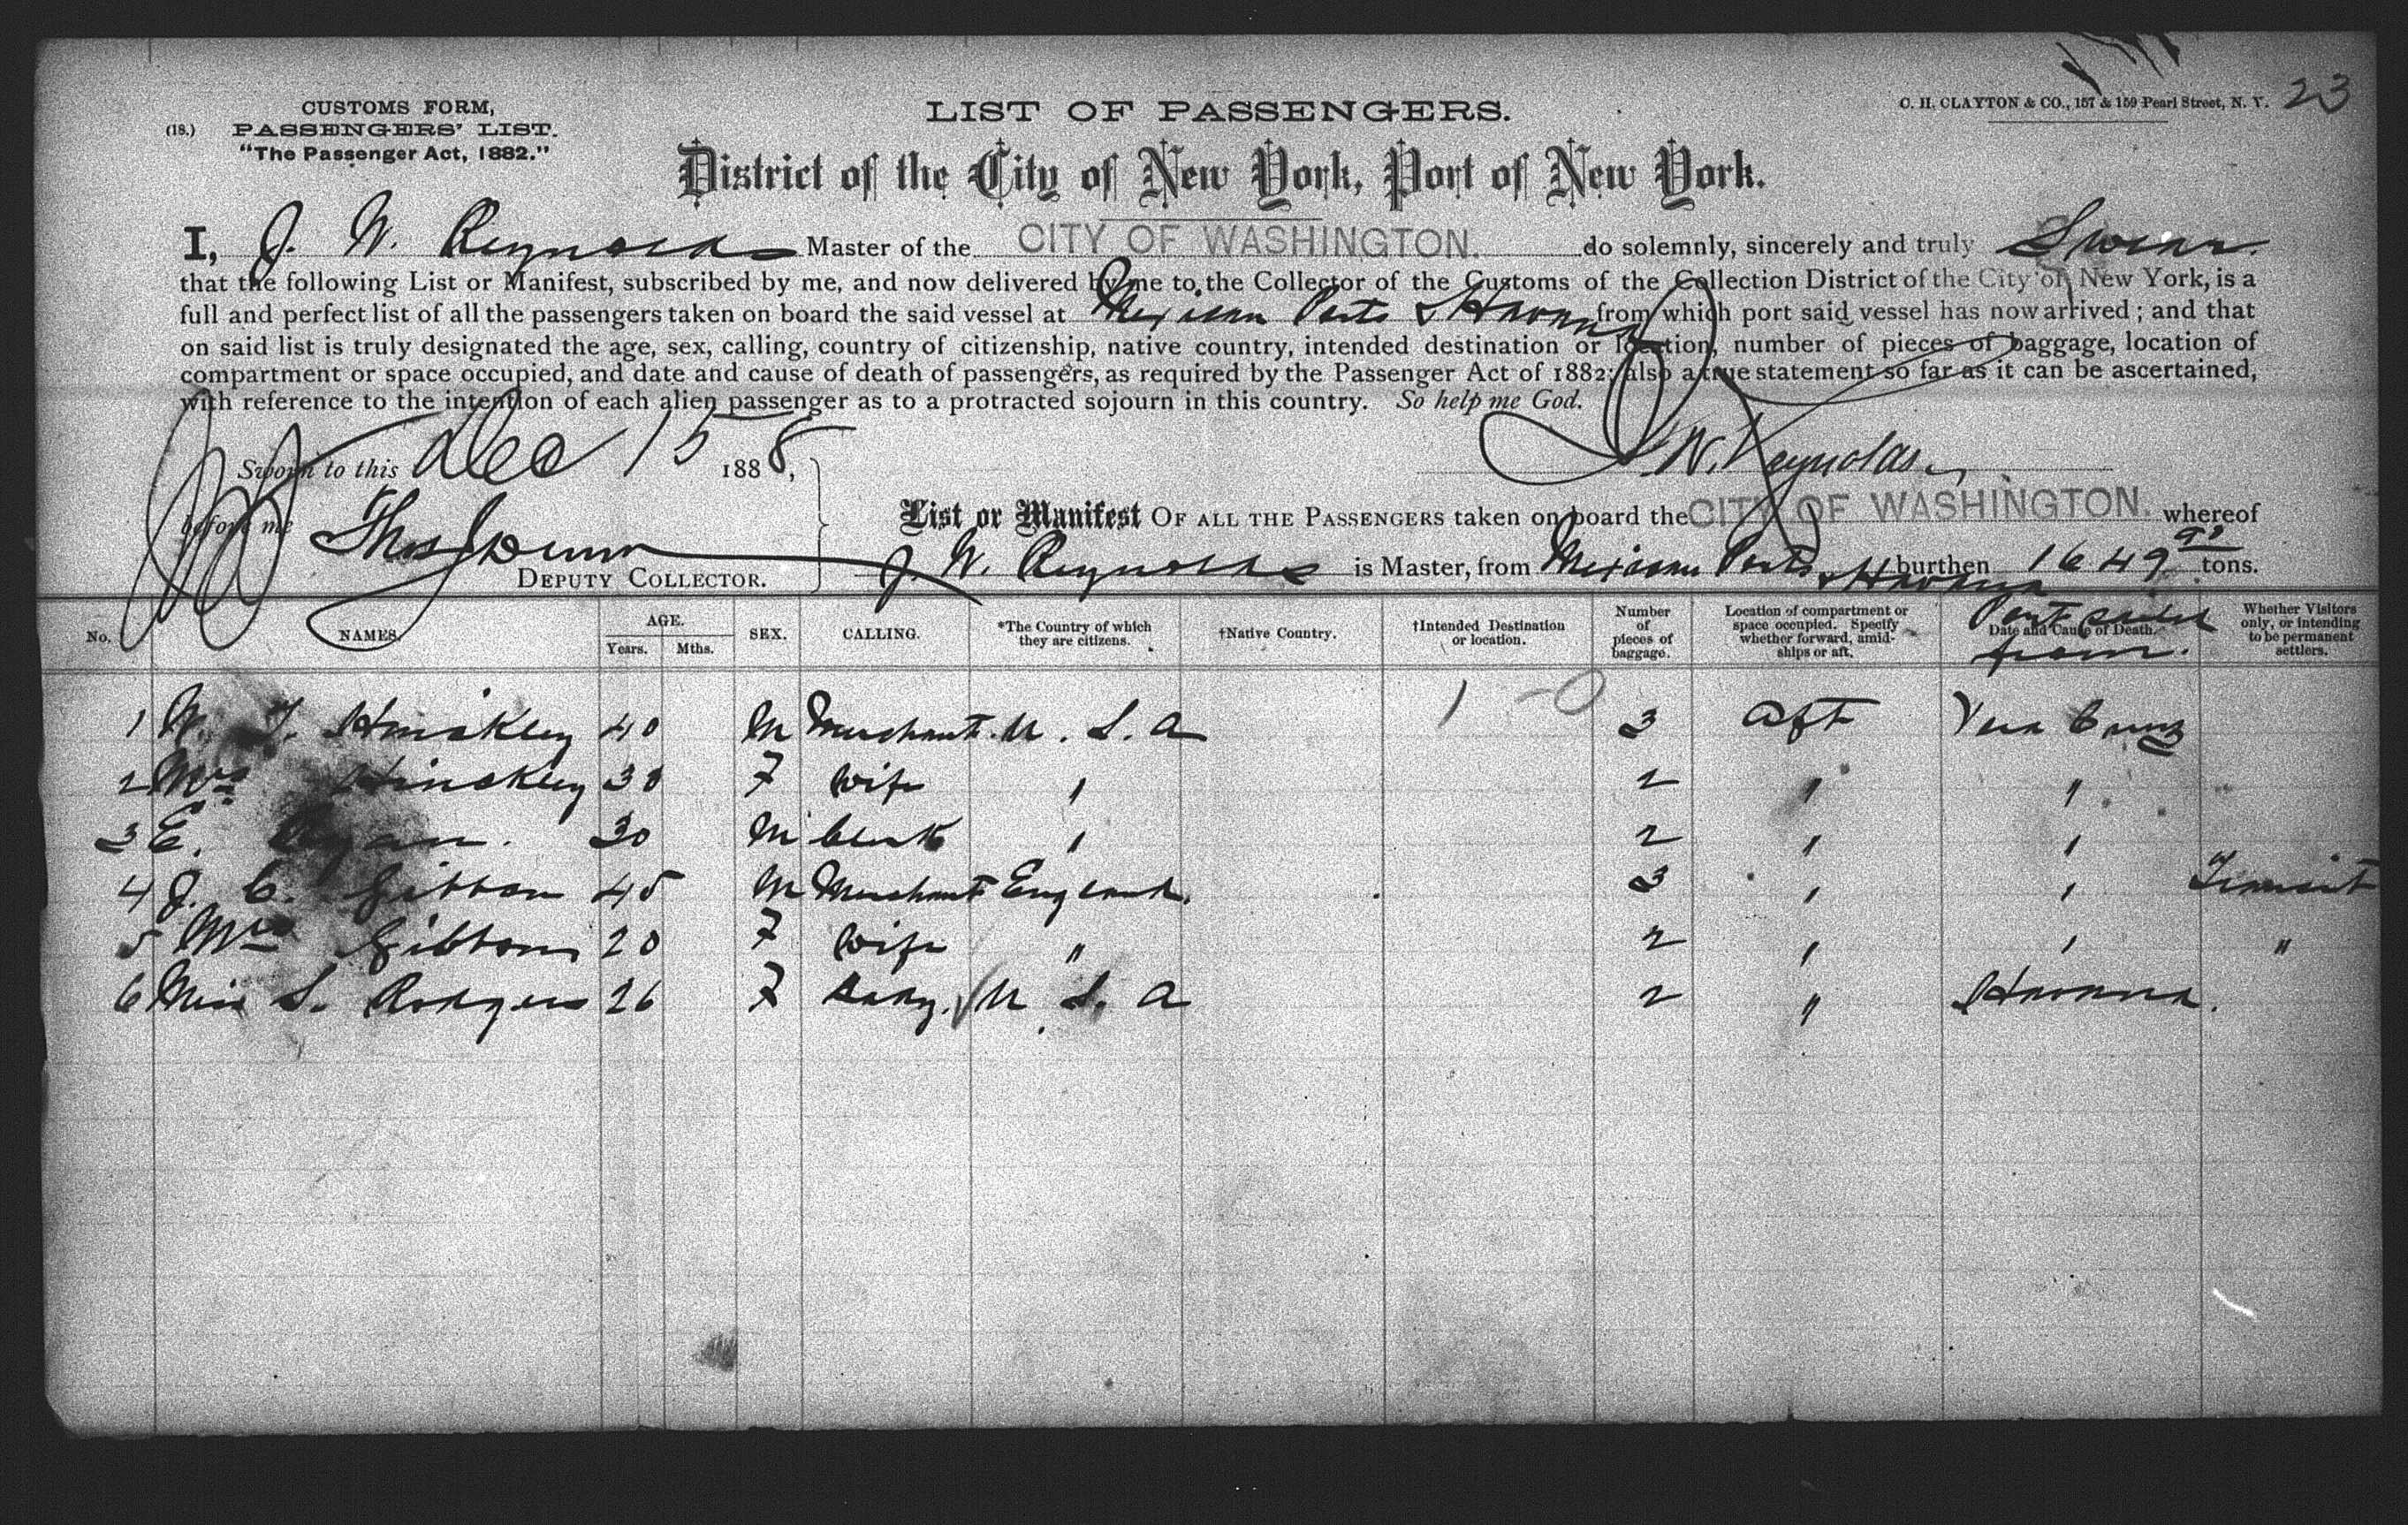 23
CUSTOMS FORM,
(18.) PASSENGERS' LIST.
"The Passenger Act, 1882."
LIST OF PASSENGERS.
C. H. CLAYTON & CO., 157 & 159 Pearl Street, N. Y.
District of the City of New York, Port of New York.
I, J. W. Reynolds Master of the CITY OF WASHINGTON. do solemnly, sincerely and truly Swear.
that the following List or Manifest, subscribed by me, and now delivered by me to the Collector of the Customs of the Collection District of the City of New York, is a
full and perfect list of all the passengers taken on board the said vessel at Mexican Ports & Havana from which port said vessel has now arrived; and that
on said list is truly designated the age, sex, calling, country of citizenship, native country, intended destination or location, number of pieces of baggage, location of
compartment or space occupied, and date and cause of death of passengers, as required by the Passenger Act of 1882; also a true statement so far as it can be ascertained,
with reference to the intention of each alien passenger as to a protracted sojourn in this country. So help me God.
Sworn to this Dec 15 1888, J W. Reynolds
before me Thos Dunn
DEPUTY COLLECTOR.
List or Manifest OF ALL THE PASSENGERS taken on board the CITY OF WASHINGTON. whereof
J. W. Reynolds is Master, from Mexican Ports & Havana burthen 1649 tons.
No. NAMES. AGE. Years. Mths. SEX. CALLING. *The Country of which they are citizens. †Native Country. †Intended Destination or location. Number of pieces of baggage. Location of compartment or space occupied. Specify whether forward, amid-ships or aft. Date and Cause of Death. Port sailed from. Whether Visitors only, or intending to be permanent settlers.
1 - 0
1 W. T. Hinckley 40 M Merchant U. S. A 3 aft Vera Cruz
2 Mrs Hinckley 30 F Wife " 2 " "
3 E. Ryan. 30 M Clerk " 2 " "
4 J. C. Gibbon 45 M Merchant England. 3 " " Transit
5 Mrs Gibbons 20 F Wife " 2 " " "
6 Miss S. Rodgers 26 F Lady. U. S. A 2 " Havana.